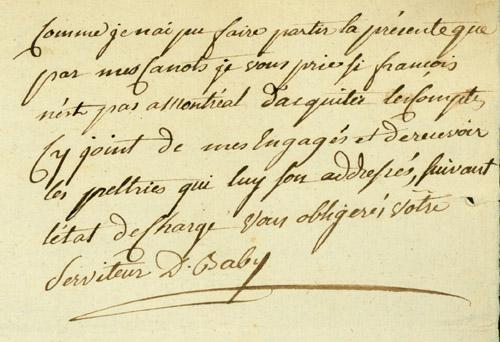 Comme je nai pu faire partir la présente que
par mes Canots je vous prie si françois
n'est pas a Montréal d'acquiter le Compte
Cy joint de mes Engagés et de recevoir
les pelteries qui luy son addressés, suivant
l'état de Charge vous obligerés votre
Serviteur D. Baby